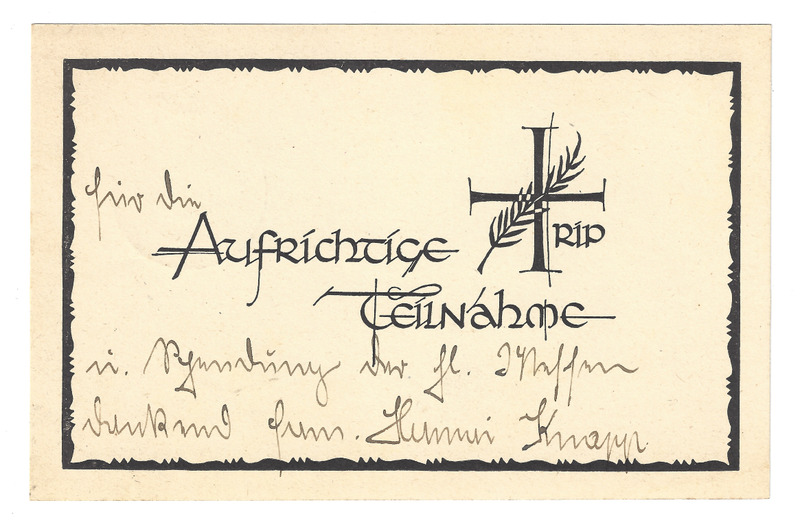 für die
Aufrichtige
RIP
Teilnahme
u. Spendung der hl. Messen
dankend Fam. Knapp